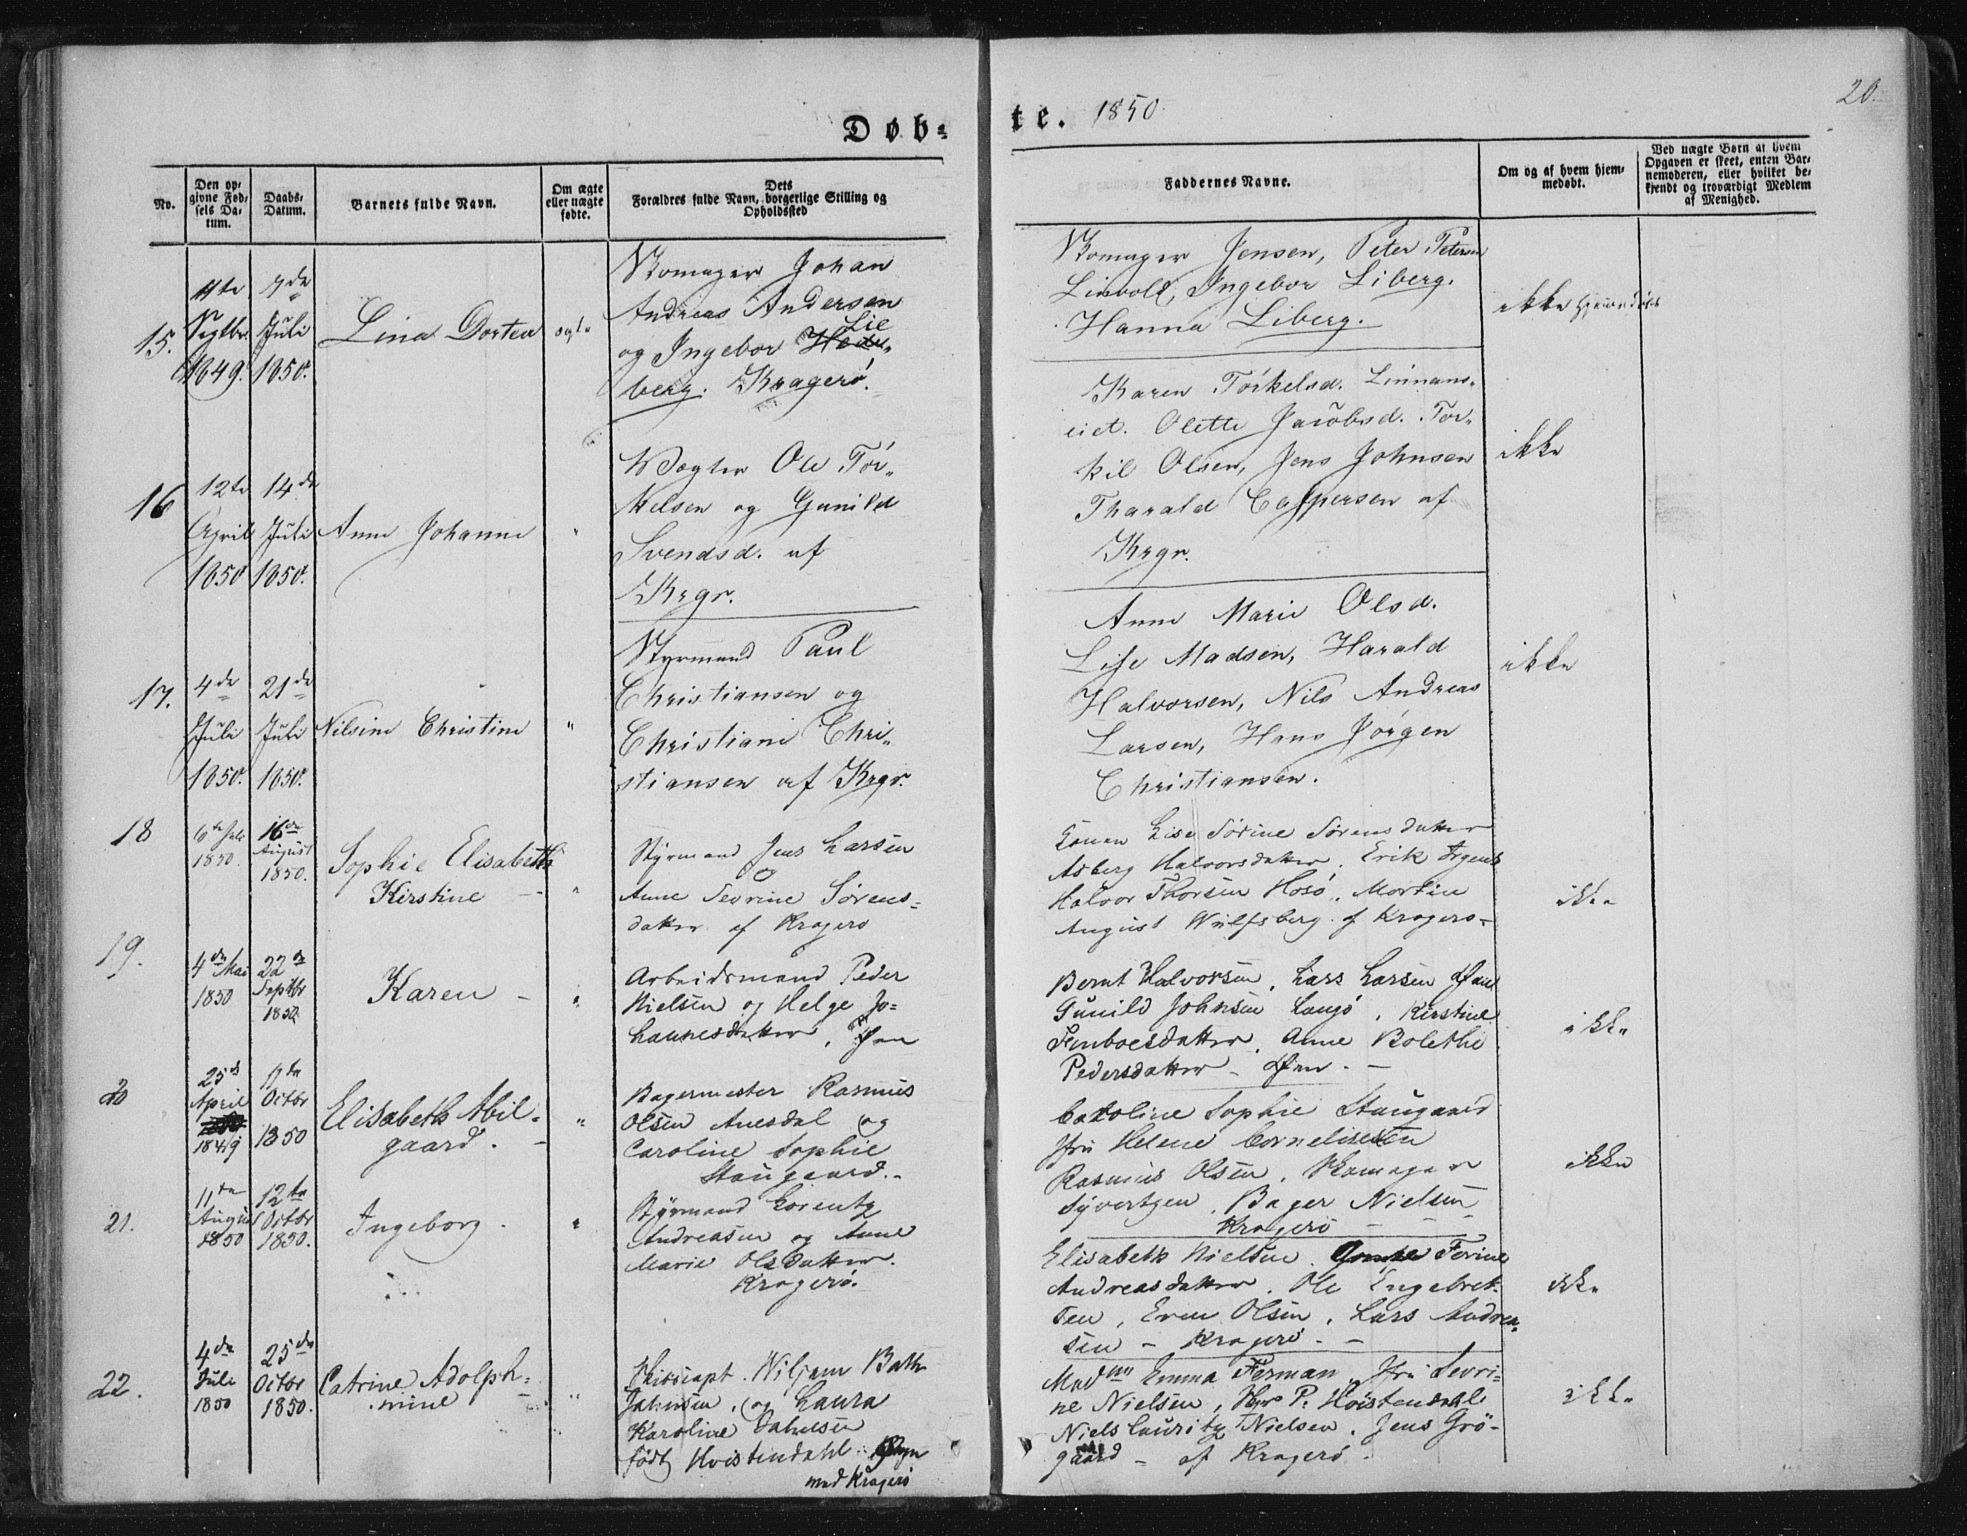 Døb=
te. 1850.
20.
No.
Den op=
givne Fød=
sels Da=
tum.
Daabs=
Datum.
Barnets fulde Navn.
Om ægte
eller uægte
fødte.
Dets
Forældres fulde Navn, borgerlige Stilling og
Opholdssted
Faddernes Navne.
Om og af hvem hjem=
medøbt.
Ved uægte Børn at hvem
Opgaven er skeet, enten Bar=
nemoderen, eller hvilket be=
kjendt og troværdigt Medlem
af Menighed.
15.
Septbr
1849.
7de
Juli
1850.
Lina Dortea
ægte
Skomager Johan
Andreas Andersen
Lie
og Ingebor
berg. Kragerö.
Skomager Jensen, Peter Petersen
Ingebor Liberg.
Hanna Liberg.
ikke hjemdöbt
16
12te
April
1850
14de
Juli
1850.
Anne Johanne
"
Vægter Ole Tör„
kelsen og Gunild
Svendsd. af
Krgr.
Karen Törkelsd.
Olette Jacobsd. Tor„
kil Olsen, Jens Johnsen
Tharald Caspersen af
Krgr.
ikke
17.
4de
Juli
1850.
21de
Juli
1850.
Nilsine Christine
"
Styrmand Paul
Christiansen og
Christiane Chri„
stiansen af Krgr.
Anne Marie Olsd.
Lise Madsen, Harald
Halvorsen, Nils Andreas
Larsen, Hans Jörgen
Christiansen.
ikke
18
Juli
1850.
16de
August
1850.
Sophie Elisabeth
Kirstine —
"
Styrmand Jens Larsen
og
Anne Sevrine Sörens=
datter af Kragerö
Konen Lise Sörine Sörensdatter
Asberg Halvorsdatter. Erik
Halvor Thorsen Morten
August Wulfsberg. af Kragerö —
ikke
19.
4de Mai
1850
22de
Septbr
1850
Karen —
"
Arbeidsmand Peder
Nielsen og Helge Jo=
hannesdatter, Öen
Bernt Halvorsen, Lars Larsen Öen
Gunild Johnsen Langö, Kirstine
datter, Anne Bolethe
Pedersdatter — Öen. —
ikke
20
25de
April
1849
11te
Octbr
1850
Elisabeth Abil=
gaard. —
"
Bagermester Rasmus
Olsen og
Caroline Sophie
Staugaard. —
Caroline Sophie Staugaard
Jfr. Helene Cornelissen
Rasmus Olsen, Skomager
Syvertsen, Bager Nielsen
Kragerö —
ikke
21.
11te
August
1850
12te
Octbr
1850.
Ingeborg.
"
Styrmand Lorentz
Andreasen og Anne
Marie Olsdatter.
Kragerö.
Elisabeth Nielsen. Terine
Andreasdatter. Ole Engebret=
sen, Even Olsen, Lars Andrea=
sen — Kragerö —
ikke
22.
4de
Juli
1850
25de
Octbr
1850.
Catrine Adolph=
mine —
"
Skibscapt. Niljam Bath
og Laura
Karoline
födt Hoistendahl.
ved Kragerö
Madme Emma Ferman, Jfr. Sevri=
ne Nielsen, Hr P. Hoistendahl
Niels Lauritz Nielsen. Jens Grö=
gaard — af Kragerö.
ikke